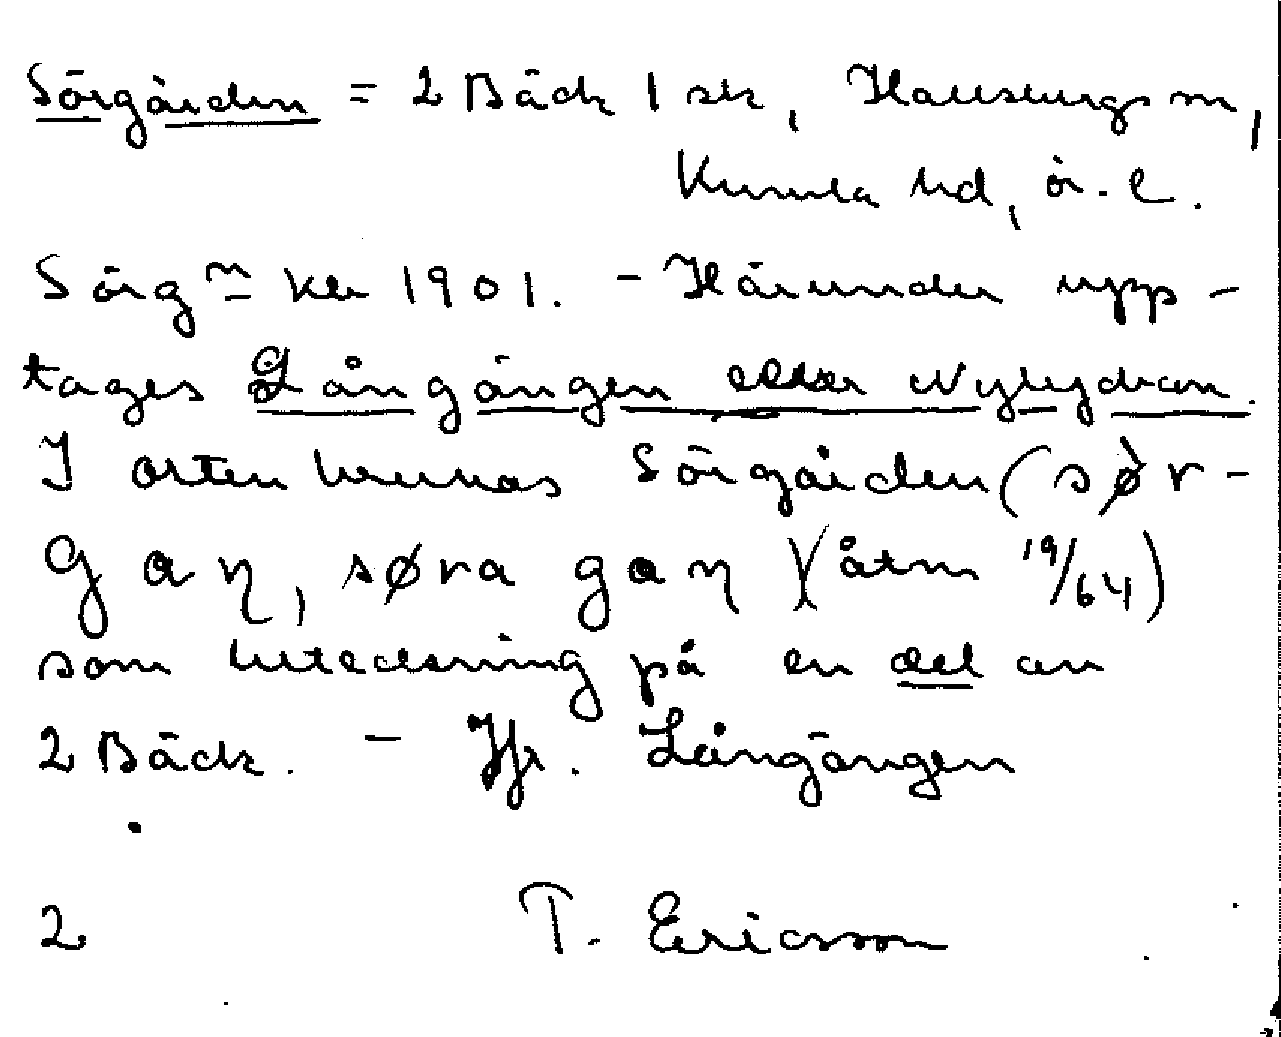 Sörgården = 2 Bäck 1 sk, Hallsbergs sn,
Kumla hd, ör. l.
Sörg n kb 1901. - Härunder upp-
tages Långängen eller Nybygdran.
I orten kunnas Sörgården (sø̀r-
gaɳ, søra gaɳ) (åtm 19/64)
som beteckning på en del av
2 Bäck. - Jfr. Långängen
2 T. Ericsson